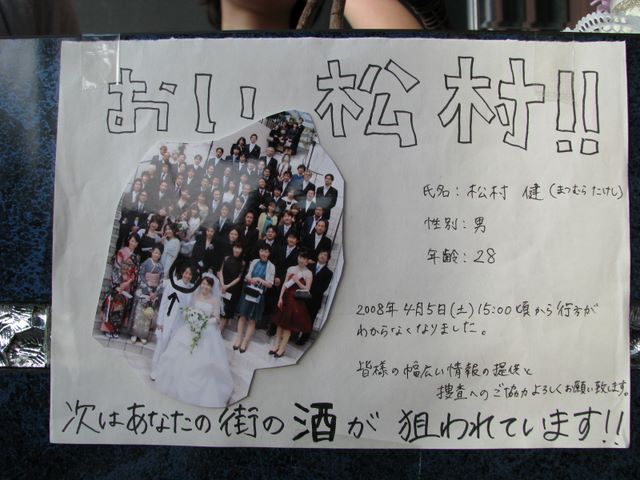 おい 松村!!
氏名：松村 健（まつむら たけし）
性別：男
年齢：28
2008年4月5日(土)15:00頃から行方が
わからなくなりました。
皆様の幅広い情報の提供と
捜査へのご協力よろしくお願い致します。
次はあなたの街の酒が 狙われています!!